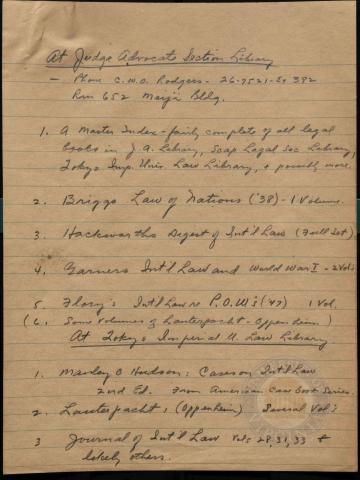 At Judge Advocate Section Library
- Phone C.W.O. Rodgers - 26-9521-Ex 392
Rm 652 Meiji Bldg.
1. A Master Index - fairly complete of all legal
books in J.A. Library, Scap Legal Sec Library,
Tokyo Imp. Univ. Law Library, + possibly more.
2. Briggs Law of Nations ('38) - 1 Volume.
3 Hackworths Digest of Int'l Law (Full Set)
4. Garners Int'l Law and World War I - 2 Vols
5. Flory's Int'l Law re P.O.W.'s ('42) 1 Vol.
(6. Some Volumes of Lauterpacht - Oppenheim)
At Tokyo Imperial U. Law Library
1. Manley O Hudson: Cases on Int'l Law
2nd Ed. From American Case Book Series.
2. Lauterpacht: (Oppenheim) Several Vol's
3 Journal of Int'l Law Vols 28, 31, 33 +
likely others.